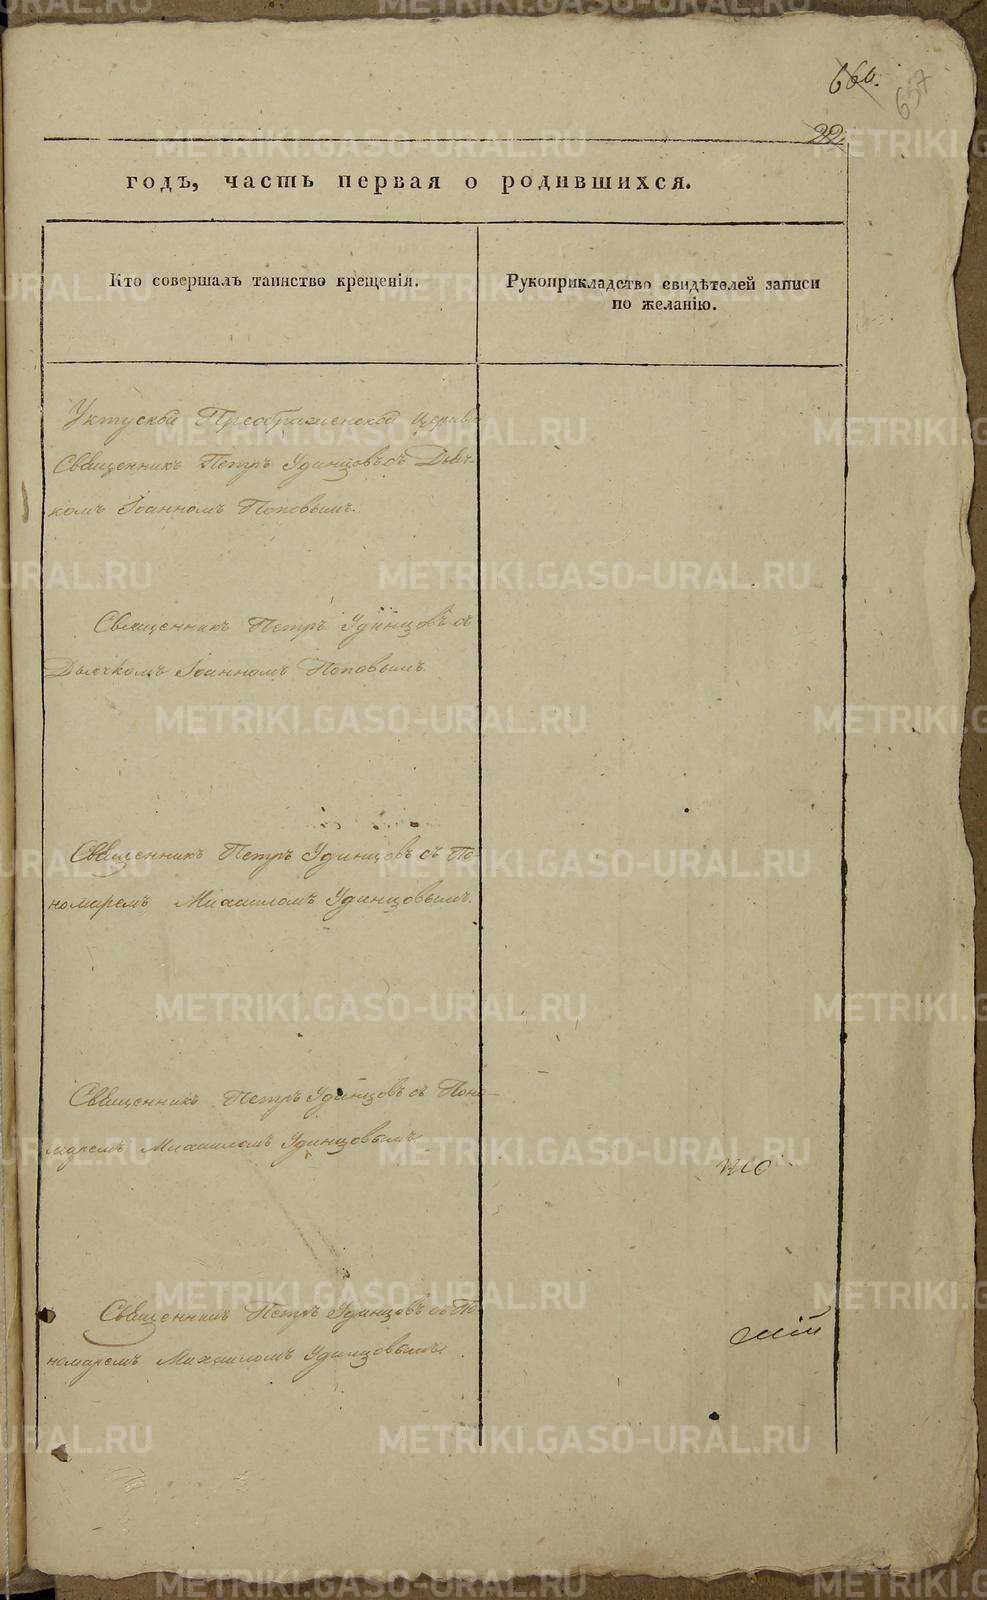 660.
657
22.
годъ, часть первая о родившихся.
Кто совершалъ таинство крещенія.
Рукоприкладство свидѣтелей записи
по желанію.
Уктуской Преображенской Церкви
Священникъ Петръ Удинцовъ съ Дьяч-
комъ Іоанномъ Поповымъ.
Священникъ Петръ Удинцовъ съ
Дьячкомъ Іоанномъ Поповымъ
Священникъ Петръ Удинцовъ съ По-
номаремъ Михаиломъ Удинцовымъ.
Священникъ Петръ Удинцовъ съ Поно-
маремъ Михаиломъ Удинцовымъ.
Священникъ Петръ Удинцовъ съ По-
номаремъ Михаиломъ Удинцовымъ.
METRIKI.GASO-URAL.RU